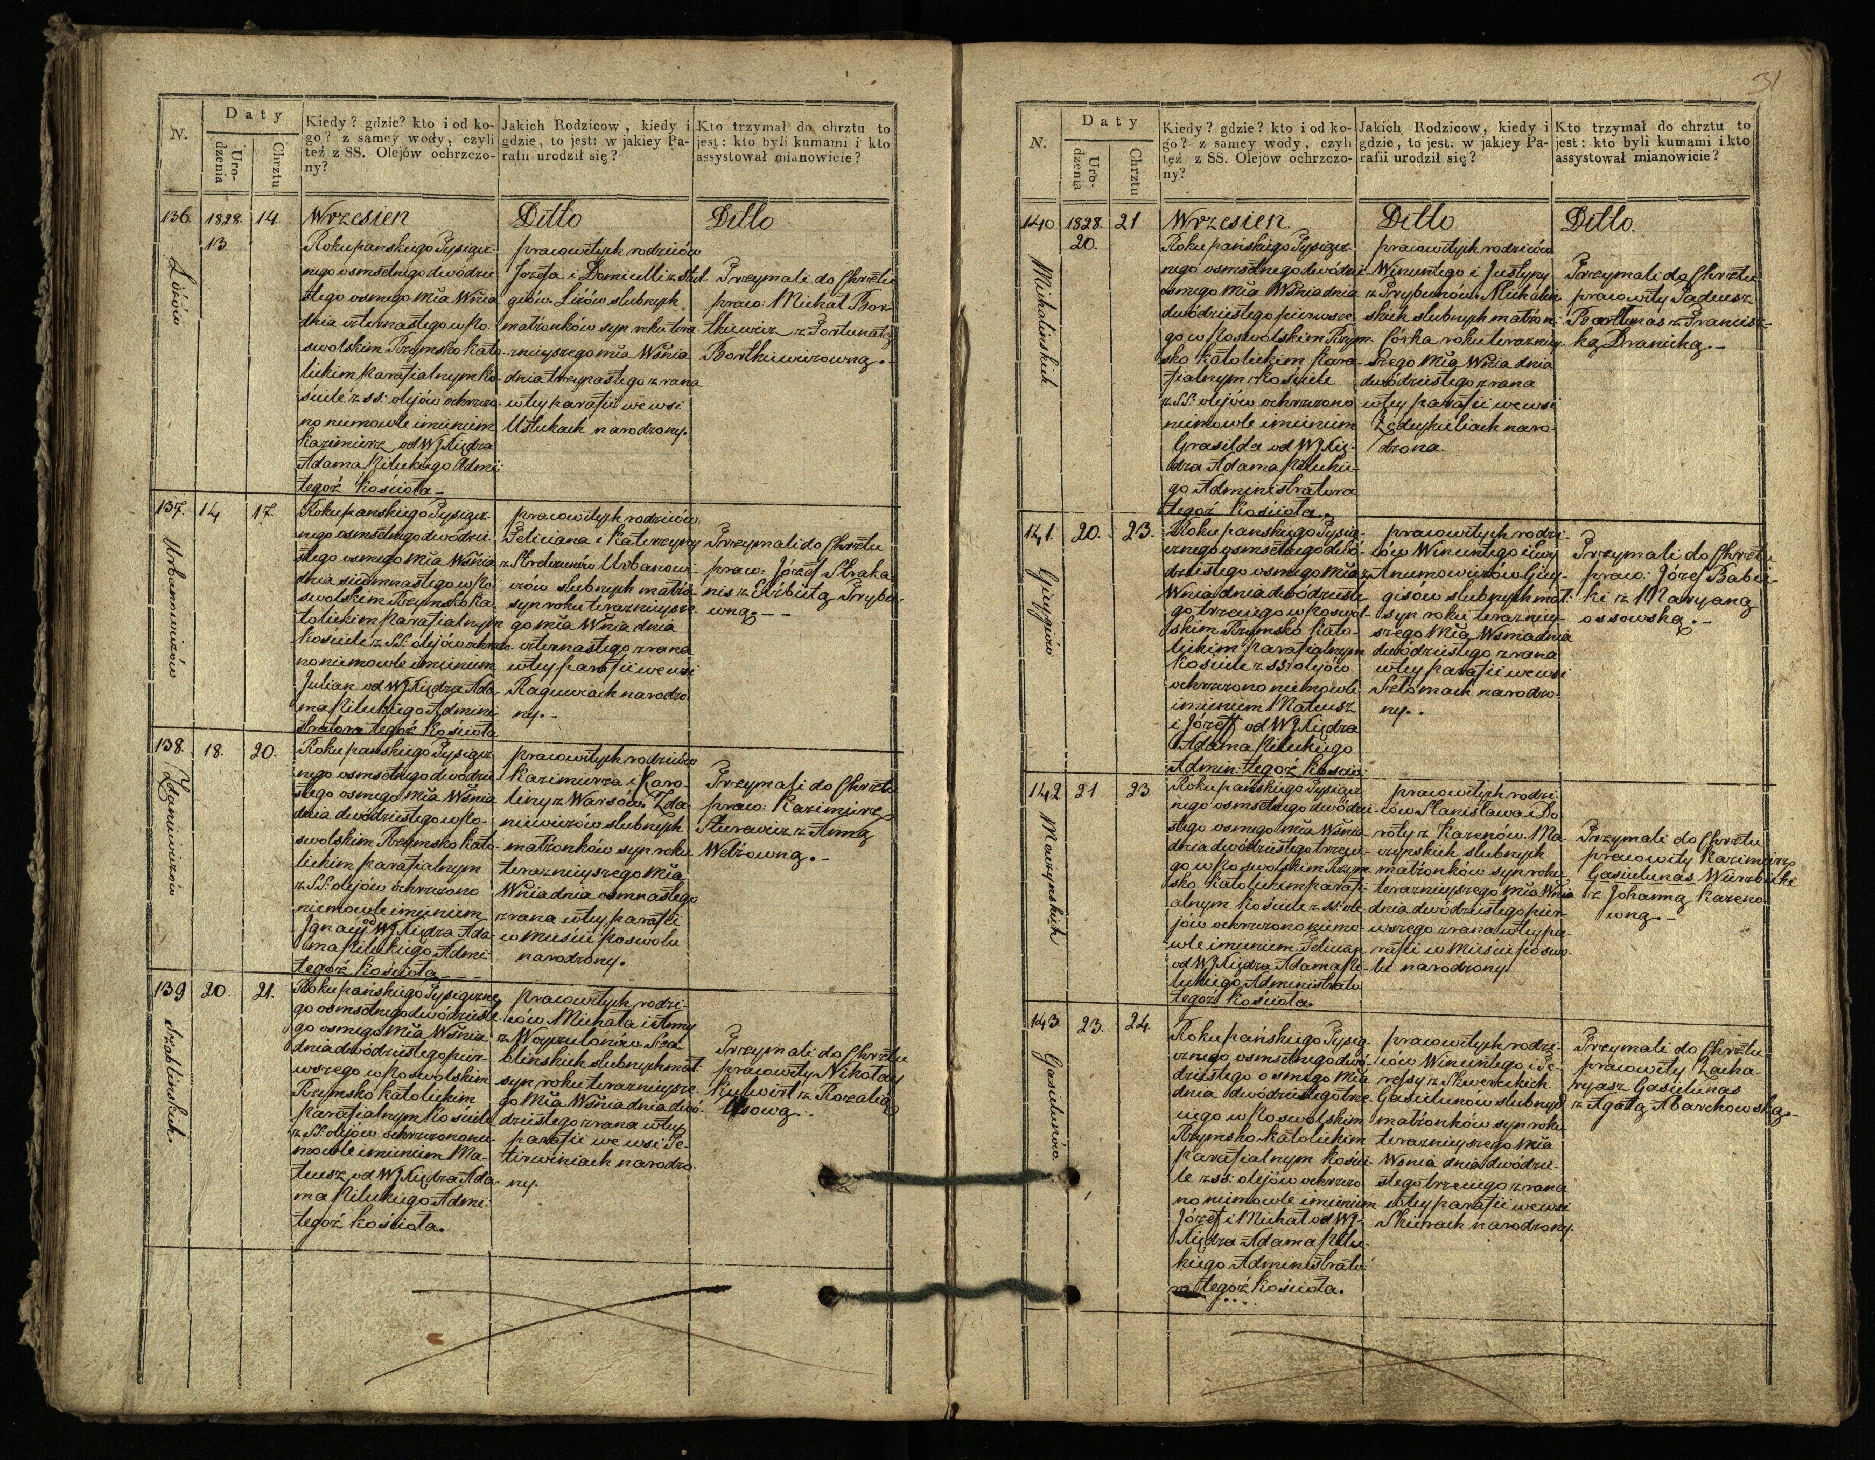 31
N.
Daty
Uro-
dzenia
Chrztu
Kiedy? gdzie? kto i od ko-
go? z samey wody, czyli
też z SS. Olejów ochrzczo-
ny?
Jakich Rodzicow, kiedy i
gdzie, to jest: w jakiey Pa-
rafii urodził się?
Kto trzymał do chrztu to
jest: kto byli kumami i kto
assystował mianowicie?
136
1828
13
14
Wrzesien
Roku pańskiego Tysiącz-
nego osmsetnego dwódzie-
stego osmego Mĩa Wśnia
dnia czternastego w Ro-
swolskim Rzymsko kato-
lickim Parafialnym Ko-
ściele z SS: olejów ochrzczo-
no niemowle imieniem
Kazimierz od WJ Xiędza
Adama Kiluckiego Admi:
tegoż Kościoła
Ditto
pracowitych rodziców
Józefa i Danielli z
Lisów slubnych
matżonków syn roku tera-
znieyszego mĩa Wśnia
dnia trzynastego z rana
w tey parafii we wsi
Ustukach narodzony.
Ditto
Trzymali do Chrztu
praco: Michał Bor-
tkiewicz z Fortunatą
Bortkiewiczowną.
137.
14
17.
Urbanowiczów
Roku pańskiego Tysiącz-
nego osmsetnego dwódzie-
stego osmego Mĩa Wśnia
dnia siedmnastego w Ro-
swolskim Rzymsko ka-
tolickim Parafialnym
Kościele z SS: olejów ochrzczo-
no niemowle imieniem
Julian od WJ Xiędza Ada-
ma Kiluckiego Admini-
stratora tegoż Kościoła
pracowitych rodziców
Feliciana i Katerzyny
Urbanowi-
czów slubnych matżo:
syn roku teraznieysze-
go mĩa Wśnia dnia
czternastego z rana
w tey parafii we wsi
Raguwach narodzo-
ny.
Trzymali do Chrztu
praw: Józef Straka
nis z Elżbietą Trybu-
wną.
138.
18.
20.
Zdanowiczów
Roku pańskiego Tysiącz-
nego osmsetnego dwódzie-
stego osmego Mĩa Wśnia
dnia dwódziestego w Ro-
swolskim Rzymsko kato-
lickim parafialnym
z SS: olejów ochrzczono
niemowle imieniem
Ignacy od WJ Xiędza Ada-
ma Kiluckiego Admi:
tegoż Kościoła
pracowitych rodziców
Kazimierza i Karo-
liny z Warsów Zda-
niewiczów slubnych
matżonków syn roku
teraznieyszego Mĩa
Wśnia dnia osmnastego
z rana w tey parafii
w mieście Roswolu
narodzony.
Trzymali do Chrztu
praco: Kazimierz
z Anną
Welżowną.
139
20.
21.
Szablinskich.
Roku pańskiego Tysiączne-
go osmsetnego dwódzieste-
go osmego Mĩa Wśnia
dnia dwódziestego pier-
wszego w Roswolskim
Rzymsko katolickim
Parafialnym Kościele
z SS: olejów ochrzczono nie-
mowle imieniem Ma-
teusz od WJ Xiędza Ada-
ma Kiluckiego Admi:
tegoż Kościoła.
pracowitych rodzi-
ców Michała i Anny
z Sza-
blinskich slubnych mat:
syn roku teraznieysze-
go Mĩa Wśnia dnia dwó-
dziestego z rana w tey
parafii we wsi Pe-
tirwiniach narodzo-
ny.
Trzymali do Chrztu
pracowity Nikołay
Kulwiet z Rozalią
Usową.
N.
Daty
Uro-
dzenia
Chrztu
Kiedy? gdzie? kto i od ko-
go? z samey wody, czyli
też z SS. Olejów ochrzczo-
ny?
Jakich Rodzicow, kiedy i
gdzie, to jest: w jakiey Pa-
rafii urodził się?
Kto trzymał do chrztu to
jest: kto byli kumami i kto
assystował mianowicie?
140
1828
20.
21
Michalinskich
Wrzesien
Roku pańskiego Tysiącz-
nego osmsetnego dwódzie-
osmego Mĩa Wśnia dnia
dwódziestego pierwsze-
go w Roswolskim Rzym-
sko katolickim Para-
fialnym Kościele
z SS: olejów ochrzczono
niemowle imieniem
Grasilda od WJ Xię-
dza Adama Kilucki-
go Administratora
tegoż Kościoła.
Ditto
pracowitych rodziców
Wincentego i Justyny
z Trybunów Michalin-
skich slubnych matżon:
córka roku terazniey-
szego Mĩa Wśnia dnia
dwódziestego z rana
w tey parafii we wsi
naro-
dzona.
Ditto.
Trzymali do Chrztu
pracowity Tadeusz
Bartunas z Francisz-
ką Dranicką.
141
20.
23.
Roku pańskiego Tysią-
cznego osmsetnego dwó-
dziestego osmego Mĩa
Wśnia dnia dwódzieste-
go trzeciego w Roswol-
skim Rzymsko kato-
lickim Parafialnym
Kościele z SS: olejów
ochrzczono niemowle
imieniem Mateusz
i Józef od WJ Xiędza
Adama Kiluckiego
Admin: tegoż Kościo:
pracowitych rodzi-
ców Wincentego i Ewy
z
slubnych mat:
syn roku terazniey-
szego Mĩa Wśnia dnia
dwódziestego z rana
w tey parafii we wsi
Szłomach narodzo-
ny.
Trzymali do Chrztu
praco: Józef Babic-
ki z Maryaną
ossowską.
142
21
23
Maczynskich
Roku pańskiego Tysiącz-
nego osmsetnego dwódzie-
stego osmego Mĩa Wśnia
dnia dwódziestego trzecie-
go w Roswolskim Rzym-
sko katolickim parafi-
alnym Kościele z SS: ole-
jów ochrzczono niemo-
wle imieniem Felician
od WJ Xiędza Adama Ki-
luckiego Administrato:
tegoż Kościoła.
pracowitych rodzi-
ców Stanisława i Do-
roty z Karenów Ma-
czynskich slubnych
matżonków syn roku
teraznieyszego mĩa Wśnia
dnia dwódziestego pier-
wszego z rana w tey pa-
rafii w mieście Roswo-
lu narodzony.
Trzymali do Chrztu
pracowity Kazimierz
Gasiulunas Wierzbicki
z Johanną Kareno-
wną.
143
23.
24
Gasiulunów.
Roku pańskiego Tysią-
cznego osmsetnego dwó-
dziestego osmego Mĩa
dnia dwódziestego trze-
ciego w Roswolskim
Rzymsko katolickim
parafialnym Koście-
le z SS: olejów ochrzczo-
no niemowle imieniem
Józef i Michał od WJ
Xiędza Adama Kiluc-
kiego Administrato-
ra tegoż Kościoła.
pracowitych rodzi-
ców Wincentego i Te-
refsy z Skwereckich
Gasiulunow slubnych
matżonków syn roku
teraznieyszego Mĩa
Wśnia dnia dwódzie-
stego trzeciego z rana
w tey parafii we wsi
Skierach narodzony.
Trzymali do Chrztu
pracowity Zacha-
ryasz Gasiulunas
z Agatą Abarchowską.